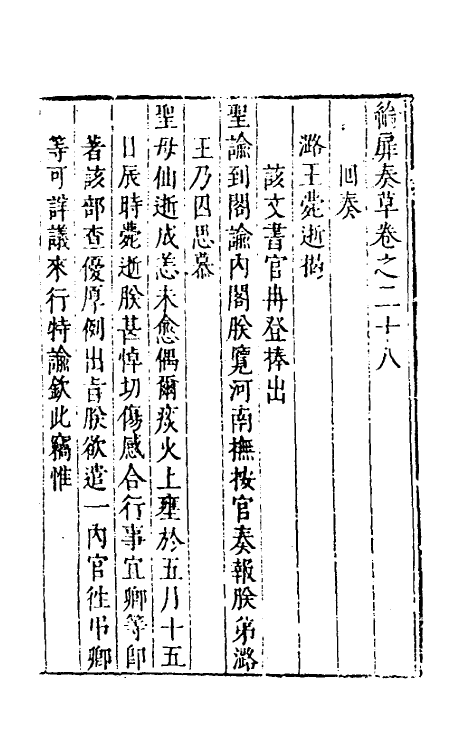 綸扉奏草卷之二十八
回奏
潞王薨逝揭
該文書官冉登捧出
聖諭到閣諭內閣朕覽河南撫按官奏報朕弟潞
王乃因思慕
聖母仙逝成恙未愈偶爾痰火上壅於五月十五
日辰時薨逝朕甚悼切傷感合行事宜卿等即
著該部查優厚例出旨朕欲遣一內官徃弔卿
等可詳議來行特諭欽此竊惟